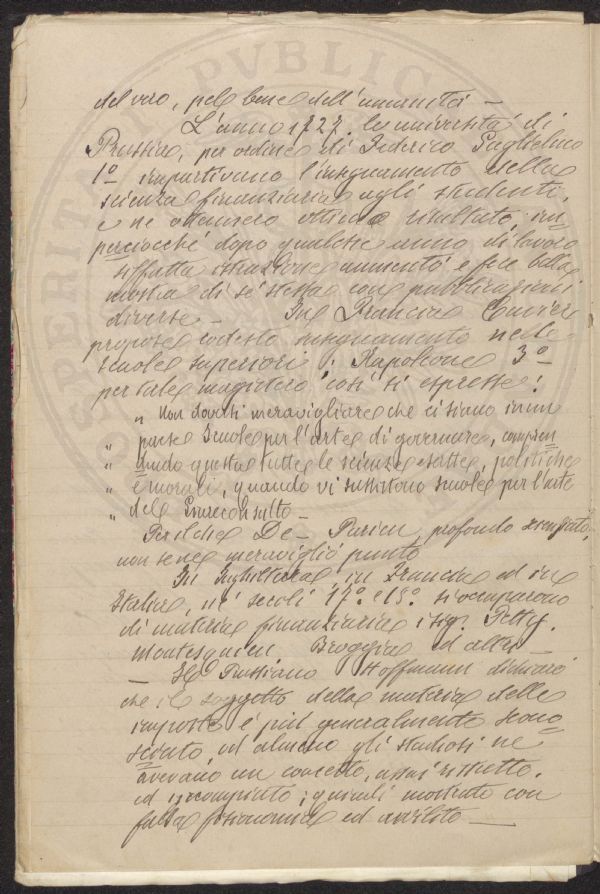 del vero, pel bene dell'umanità —
L'anno 1727. le università di
Prussia, per ordine di Federico Guglielmo
1º impartivano l'insegnamento della
scienza finanziaria agli studenti,
e ne ottennero ottimo risultato; im-
perciocchè dopo qualche anno di lavoro
siffatta istruzione aumentò e fece bella
mostra di sè stessa con pubblicazioni
diverse — In Francia Cuvier
propose codesto insegnamento nelle
scuole superiori. Napoleone 3º
per tale magistero così si espresse:
" Non doversi meravigliare che ci siano in un
" paese Scuole per l'arte di governare, compren
" dendo questa tutte le scienze esatte, politiche
" e morali, quando vi sussistono scuole per l'arte
" del Giureconsulto —
Perilchè De-Parieu, profondo
non se ne meravigliò punto
In Inghilterra, in Francia ed in
Italia, ne' secoli 17º e 18º si occuparono
di materia finanziaria i sig. Petty.
Montesquieu Broggia ed altri —
— Il Prussiano Hoffmann dichiarò
che il soggetto della materia delle
imposte è più generalmente scono-
sciuto, od almeno gli studiosi ne
avevano un concetto, assai ristretto.
ed incompiuto; quindi mostrato con
falsa fisionomia ed avvilito —